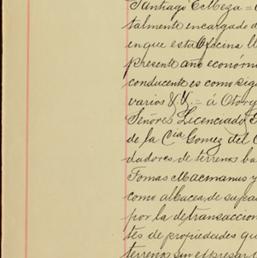 Santiago C. Meza =
talmente encargado d
en que esta Oficina ll
presente año económ
conducente es como sigu
varios V.V. = á Otorg
Señores Licenciado
de la Cia Gomez del C
dadores de terrenos ba
Tomas Macmanus y
como albacea de su pa
por la de transaccion
tes de propiedades qu
terrenos sin espresar